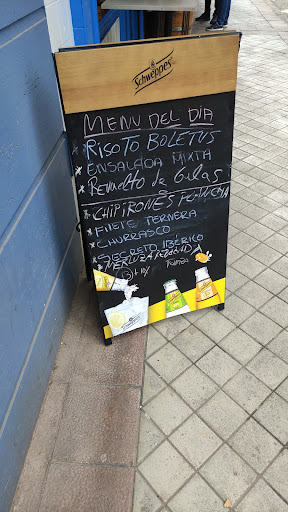 Schweppes
MENU DEL DIA
RISOTO BOLETUS
ENSALADA MIXTA
REVUELTO de GULAS
CHIPIRONES
FILETE TERNERA
CHURRASCO
SECRETO IBÉRICO
MERLUZA